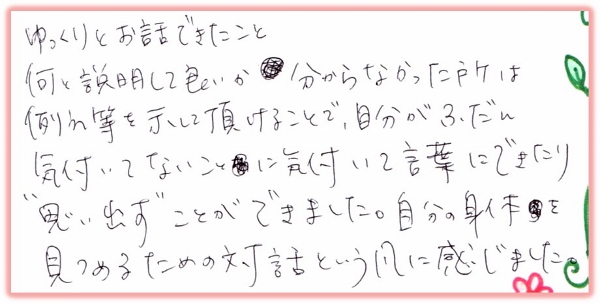 ゆっくりとお話できたこと
何と説明して良いか分からなかった時は
例え等を示して頂けることで、自分がふだん
気付いてないことに気付いて言葉にできたり
"思い出す"ことができました。自分の身体を
見つめるための対話という風に感じました。